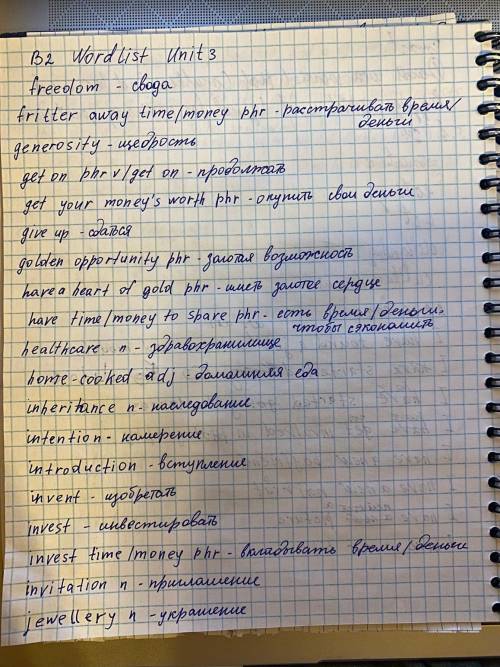 B2 Wordlist Unit 3
freedom - свода
fritter away time/money phr - расстрачивать время/
деньги
generosity - щедрость
get on phr v/get on - продолжать
get your money's worth phr - окупить свои деньги
give up - сдаться
golden opportunity phr - золотая возможность
have a heart of gold phr - иметь золотое сердце
have time/money to spare phr - есть время/деньги,
чтобы сэкономить
healthcare n - здравохранилище
home-cooked adj - домашняя еда
inheritance n - наследование
intention - намерение
introduction - вступление
invent - изобретать
invest - инвестировать
invest time/money phr - вкладывать время/деньги
invitation n - приглашение
jewellery n - украшение